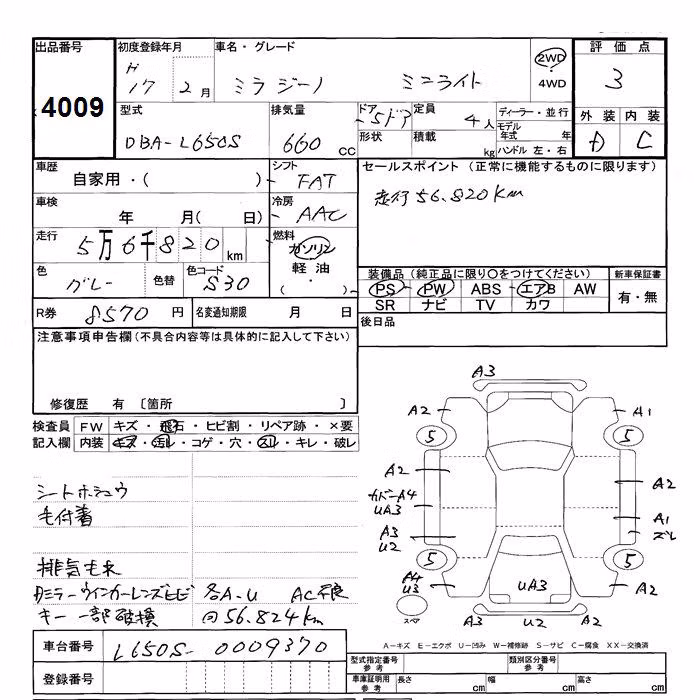 出品番号
4009
初度登録年月
H
17 2月
車名・グレード
ミラジーノ ミニライト
2WD
・
4WD
評価点
3
外装 内装
D C
型式
DBA-L650S
排気量
660 cc
ドア
5ドア
形状
定員
4人
積載
kg
ディーラー・並行
モデル年式 年
ハンドル 左・右
車歴
自家用・( )
シフト
FAT
車検
年 月( 日)
冷房
AAC
走行
5万6千820 km
燃料
ガソリン
軽油
( ・ )
色
グレー
色替
色コード
S30
R券 8570 円
名変通知期限 月 日
セールスポイント (正常に機能するものに限ります)
走行56.820Km
装備品 (純正品に限り○をつけてください)
PS PW ABS エアB AW
SR ナビ TV カワ
新車保証書
有・無
後日品
注意事項申告欄(不具合内容等は具体的に記入して下さい)
修復歴 有 〔箇所 〕
検査員 FW キズ・飛石・ヒビ割・リペア跡・×要
記入欄 内装 キズ・汚れ・コゲ・穴・スレ・キレ・破レ
シートホシュウ
毛付着
排気モれ
ミラーウインカーレンズヒビ 各A-U AC不良
キー一部破損 ◎56.824km
A3
A2 A1
5 5
A2 A2
カバーA4
UA3 A1
A3 ズレ
U2
5 5
A4
U3 UA3 A2
スペア A3 U2 A2
A-キズ E-エクボ U-凹み W-補修跡 S-サビ C-腐食 XX-交換済
車台番号 L650S-0009370
登録番号
型式指定番号
参考
類別区分番号
参考
車庫証明用
参考
長さ cm 幅 cm 高さ cm